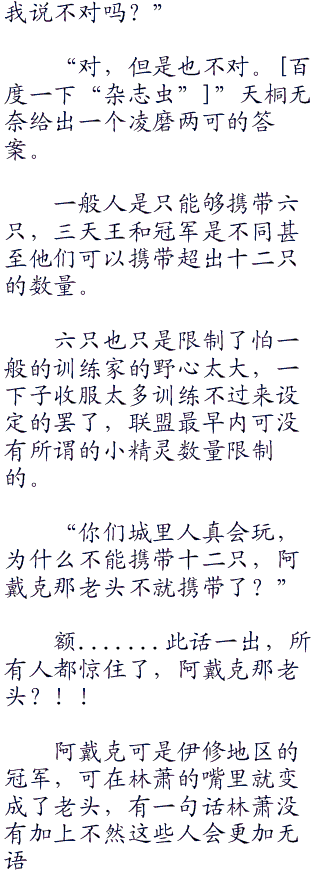 我说不对吗？”
“对，但是也不对。[百
度一下“杂志虫”]”天桐无
奈给出一个凌磨两可的答
案。
一般人是只能够携带六
只，三天王和冠军是不同甚
至他们可以携带超出十二只
的数量。
六只也只是限制了怕一
般的训练家的野心太大，一
下子收服太多训练不过来设
定的罢了，联盟最早内可没
有所谓的小精灵数量限制
的。
“你们城里人真会玩，
为什么不能携带十二只，阿
戴克那老头不就携带了？”
额.......此话一出，所
有人都惊住了，阿戴克那老
头？！！
阿戴克可是伊修地区的
冠军，可在林萧的嘴里就变
成了老头，有一句话林萧没
有加上不然这些人会更加无
语